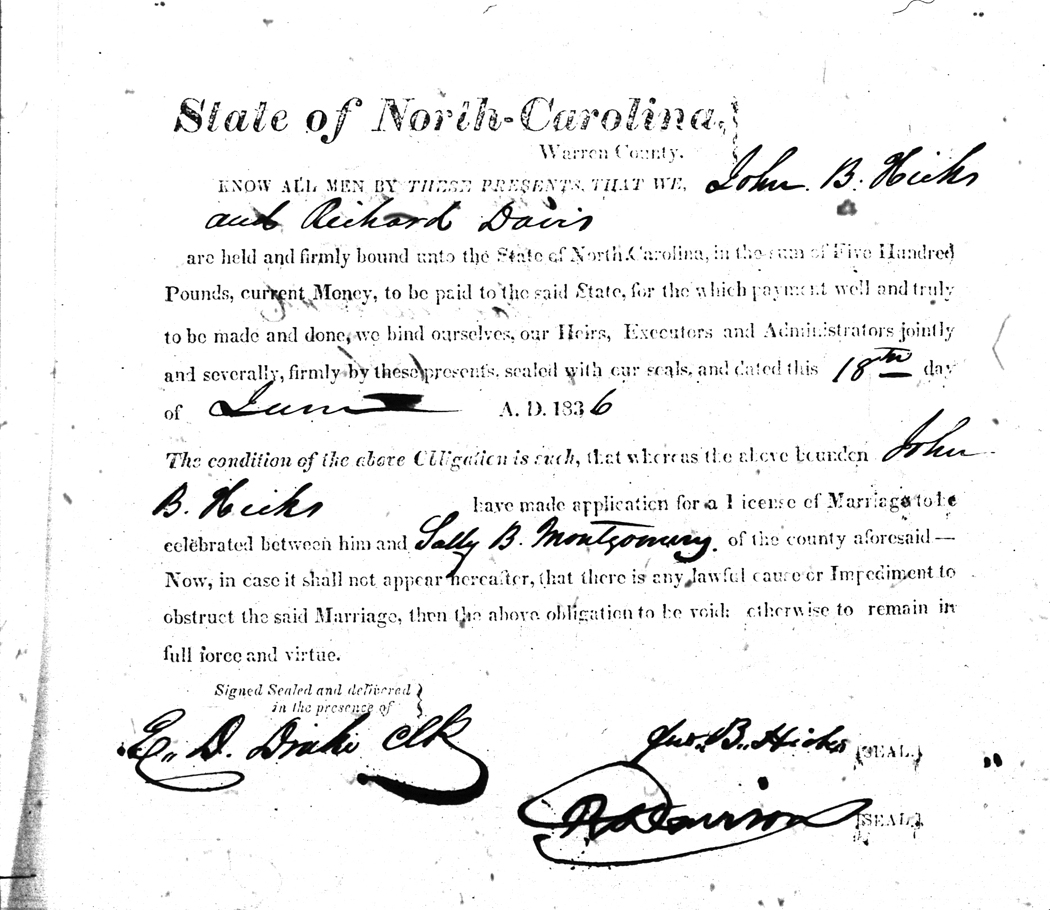 State of North-Carolina,
Warren County.
KNOW ALL MEN BY THESE PRESENTS, THAT WE, John B. Hicks
and Richard Davis
are held and firmly bound unto the State of North-Carolina, in the sum of Five Hundred
Pounds, current Money, to be paid to the said State, for the which payment well and truly
to be made and done, we bind ourselves, our Heirs, Executors and Administrators jointly
and severally, firmly by these presents, sealed with our seals, and dated this 18th day
of June A. D. 1836
The condition of the above Obligation is such, that whereas the above bounden John
B. Hicks have made application for a License of Marriage to be
celebrated between him and Sally B. Montgomery, of the county aforesaid—
Now, in case it shall not appear hereafter, that there is any lawful cause or Impediment to
obstruct the said Marriage, then the above obligation to be void: otherwise to remain in
full force and virtue.
Signed Sealed and delivered
in the presence of
E. D. Drake Clk
Jno. B. Hicks (SEAL.)
(SEAL.)